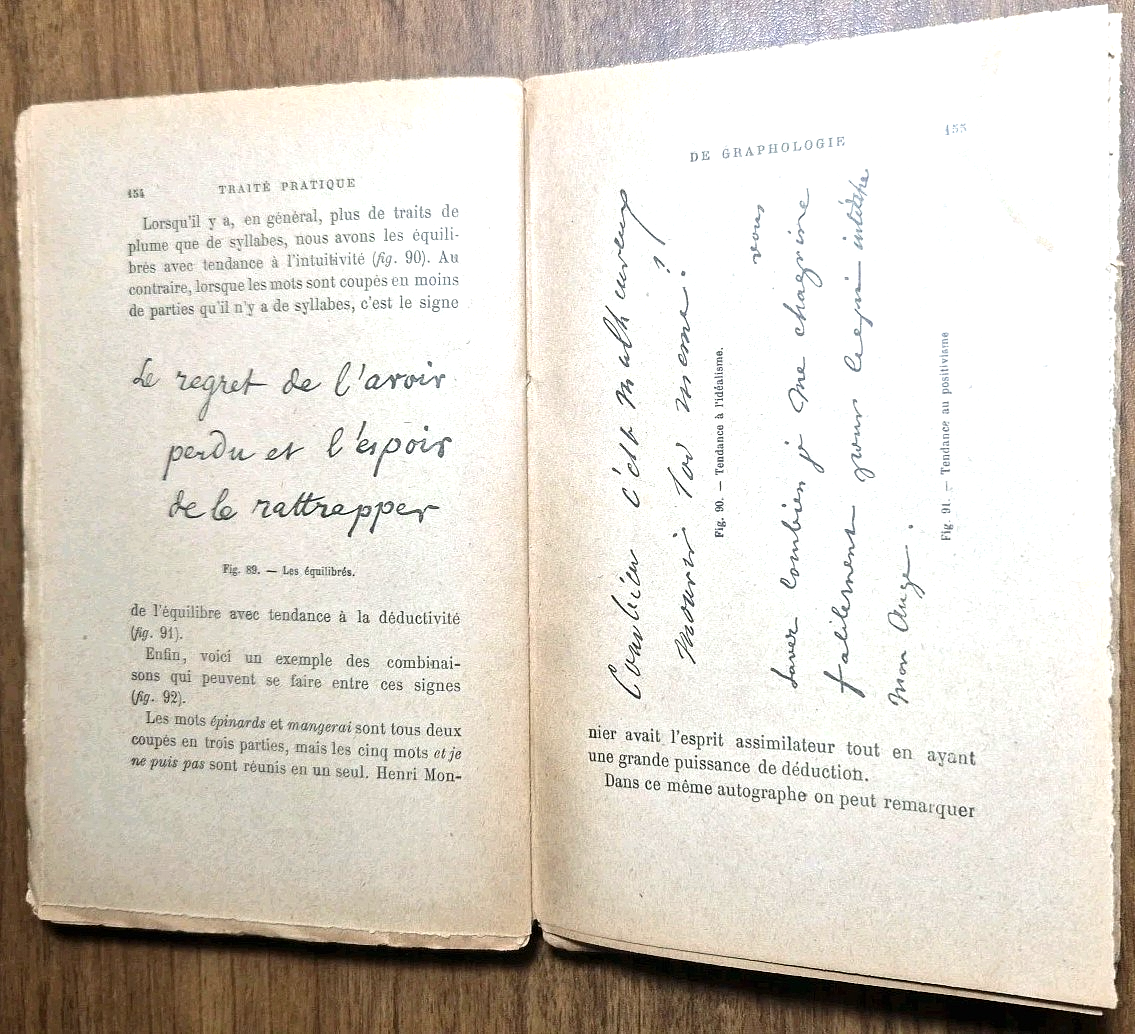 154 TRAITÉ PRATIQUE
Lorsqu'il y a, en général, plus de traits de
plume que de syllabes, nous avons les équili-
brés avec tendance à l'intuitivité (fig. 90). Au
contraire, lorsque les mots sont coupés en moins
de parties qu'il n'y a de syllabes, c'est le signe
Le regret de l'avoir
perdu et l'espoir
de le rattrapper
Fig. 89. — Les équilibrés.
de l'équilibre avec tendance à la déductivité
(fig. 91).
Enfin, voici un exemple des combinai-
sons qui peuvent se faire entre ces signes
(fig. 92).
Les mots épinards et mangerai sont tous deux
coupés en trois parties, mais les cinq mots et je
ne puis pas sont réunis en un seul. Henri Mon-
DE GRAPHOLOGIE 155
Combien c'est malheureux
mourir toi meme!
Fig. 90. — Tendance à l'idéalisme.
vous
savez combien je me chagrine
facilement pour
mon Ange.
Fig. 91. — Tendance au positivisme
nier avait l'esprit assimilateur tout en ayant
une grande puissance de déduction.
Dans ce même autographe on peut remarquer